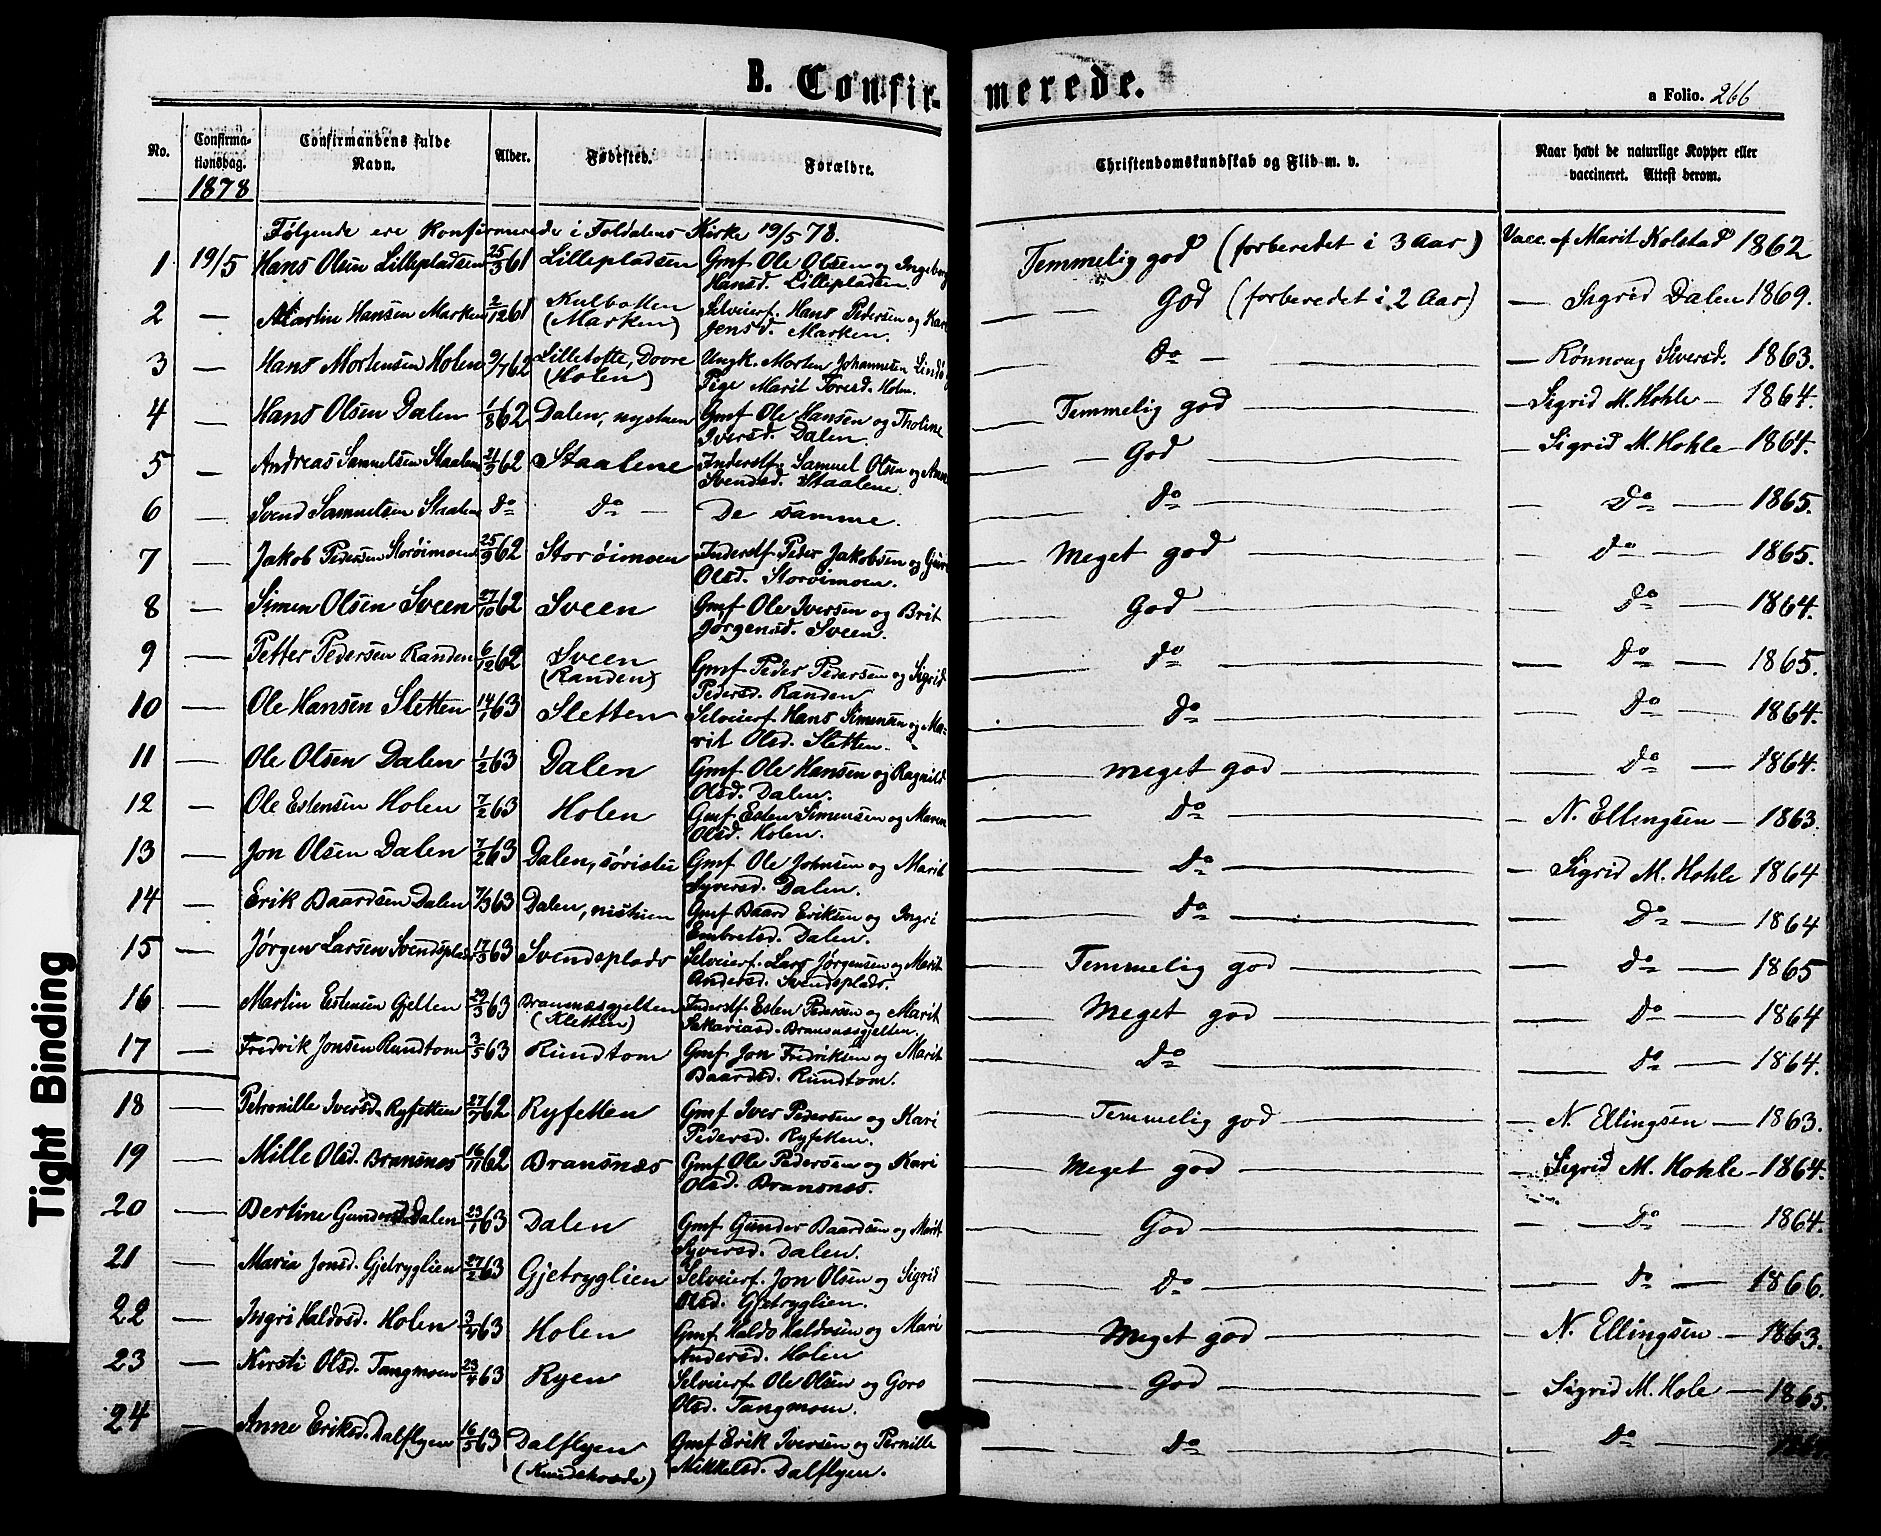 B. Confir-merede.
a Folio. 266
No. Confirma-tionsdag. Confirmandens fulde Navn. Alder. Fødested. Forældre. Christendomskundskab og Flid m. v. Naar havt de naturlige Kopper eller vaccineret. Attest derom.
1878
Følgende ere konfirmerede i Foldalens Kirke 19/5 78.
1 19/5 Hans Olsen Lillepladsen 25/3 61 Lillepladsen Gmf Ole Olsen og Ingeborg Temmelig god (forberedet i 3 Aar) Vacc. af Marit Kolstad 1862
Hansd. Lillepladsen.
2 — Martin Hansen Marken 2/12 61 Kulbotten Selveierf. Hans Pedersen og Kari God (forberedet i 2 Aar) — Sigrid Dalen 1869.
(Marken) Jensd. Marken.
3 — Hans Mortensen Holen 9/7 62 Lilletofte, Dovre Ungk. Morten Johannesen Do — Rønnoug Siversd. 1863.
(Holen) Pige Marit Toresd. Holen.
4 — Hans Olsen Dalen 1/8 62 Dalen, nystuen Gmf Ole Hansen og Tholine Temmelig god — Sigrid M. Hohle — 1864.
Iversd. Dalen.
5 — Andreas Samuelsen Staalene 62 Staalene Inderstf. Samuel Olsen og Anne God — Sigrid M. Hohle — 1864.
Svendsd. Staalene.
6 — Svend Samuelsen Staalene Do Do — De samme. Do Do — 1865.
7 — Jakob Pedersen Storøimoen 25/9 62 Storøimoen Inderstf. Peder Jakobsen og Guri Meget god — Do — 1865.
Olsd. Storøimoen.
8 — Simen Olsen Sveen 27/10 62 Sveen Gmf Ole Iversen og Brit God — Do — 1864.
Jørgensd. Sveen.
9 — Petter Pedersen Randen 6/12 62 Sveen Gmf Peder Pedersen og Sigrid Do — Do — 1865.
(Randen) Pedersd. Randen
10 — Ole Hansen Sletten 14/1 63 Sletten Selveierf. Hans Simensen og Ma- Do — Do — 1864.
rit Olsd. Sletten.
11 — Ole Olsen Dalen 1/2 63 Dalen Gmf Ole Hansen og Ragnild meget god — Do — 1864.
Olsd. Dalen.
12 — Ole Estensen Holen 7/2 63 Holen Gmf Esten Simensen og Maren Do — N. Ellingsen — 1863.
Olsd. Holen.
13 — Jon Olsen Dalen 7/2 63 Dalen, søristu Gmf Ole Johnsen og Marit Do — Sigrid M. Hohle 1864
Syversd. Dalen.
14 — Erik Baardsen Dalen 7/3 63 Dalen, nistuen Gmf Baard Eriksen og Ingri Do — Do — 1864
Embretsd. Dalen.
15 — Jørgen Larsen Svendsplads 17/3 63 Svendsplads Selveierf. Lars Jørgensen og Marit Temmelig god — Do — 1865
Andersd. Svendsplads.
16 — Martin Estensen Gjelten 29/3 63 Bransnæsgjelten Inderstf. Esten Pedersen og Marit Meget god — Do — 1864
(Kletten) Sakariasd. Bransnæsgjelten.
17 — Fredrik Jonsen Rundtom 3/5 63 Rundtom Gmf Jon Fredriksen og Marit Do — Do — 1864.
Baardsd. Rundtom.
18 — Petronille Iversd. Ryfetten 27/9 62 Ryfetten Gmf Iver Pedersen og Kari Temmelig god — N. Ellingsen — 1863.
Pedersd. Ryfetten.
19 — Mille Olsd. Bransnes 16/11 62 Bransnæs Gmf Ole Pedersen og Kari Meget god — Sigrid M. Hohle — 1864.
Olsd. Bransnes.
20 — Bertine Gundersd. Dalen 23/1 63 Dalen Gmf Gunder Baardsen og Marit God — Do — 1864.
Syversd. Dalen.
21 — Maria Jonsd. Gjetryglien 27/2 63 Gjetryglien Selveierf. Jon Olsen og Sigrid Do — Do — 1866.
Olsd. Gjetryglien.
22 — Ingri Haldosd. Holen 3/4 63 Holen Gmf Haldo Haldosen og Mari Meget god — N. Ellingsen — 1863.
Andersd. Holen
23 — Kirsti Olsd. Tangmoen 23/4 63 Ryen Selveierf. Ole Olsen og Goro God — Sigrid M. Hole — 1865.
Olsd. Tangmoen.
24 — Anne Eriksd. Dalflyen 16/5 63 Dalflyen Gmf Erik Iversen og Pernille Do — Do —
Mikkelsd. Dalflyen.
Tight Binding